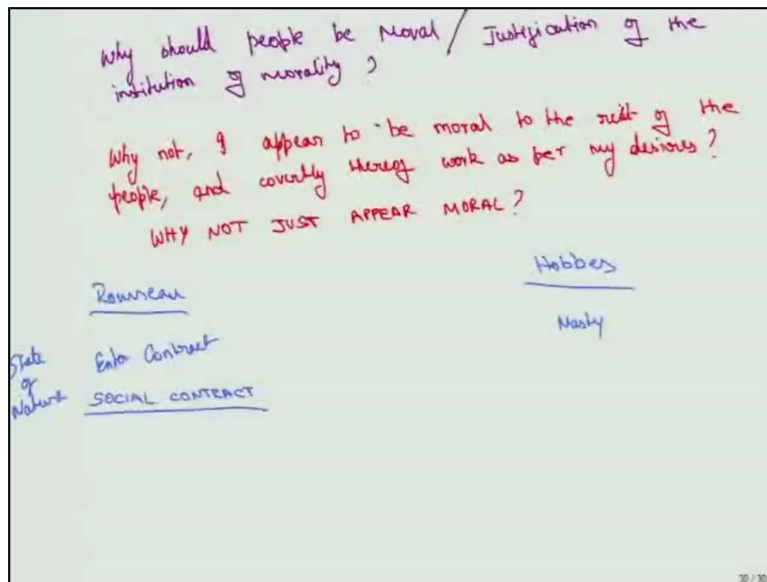 Why should people be Moral / Justification of the
institution of morality ?
Why not, I appear to be moral to the rest of the
people, and covertly thereof work as per my desires ?
WHY NOT JUST APPEAR MORAL ?
Rousseau
Hobbes
Nasty
State
of
Nature
Enter Contract
SOCIAL CONTRACT
20/30